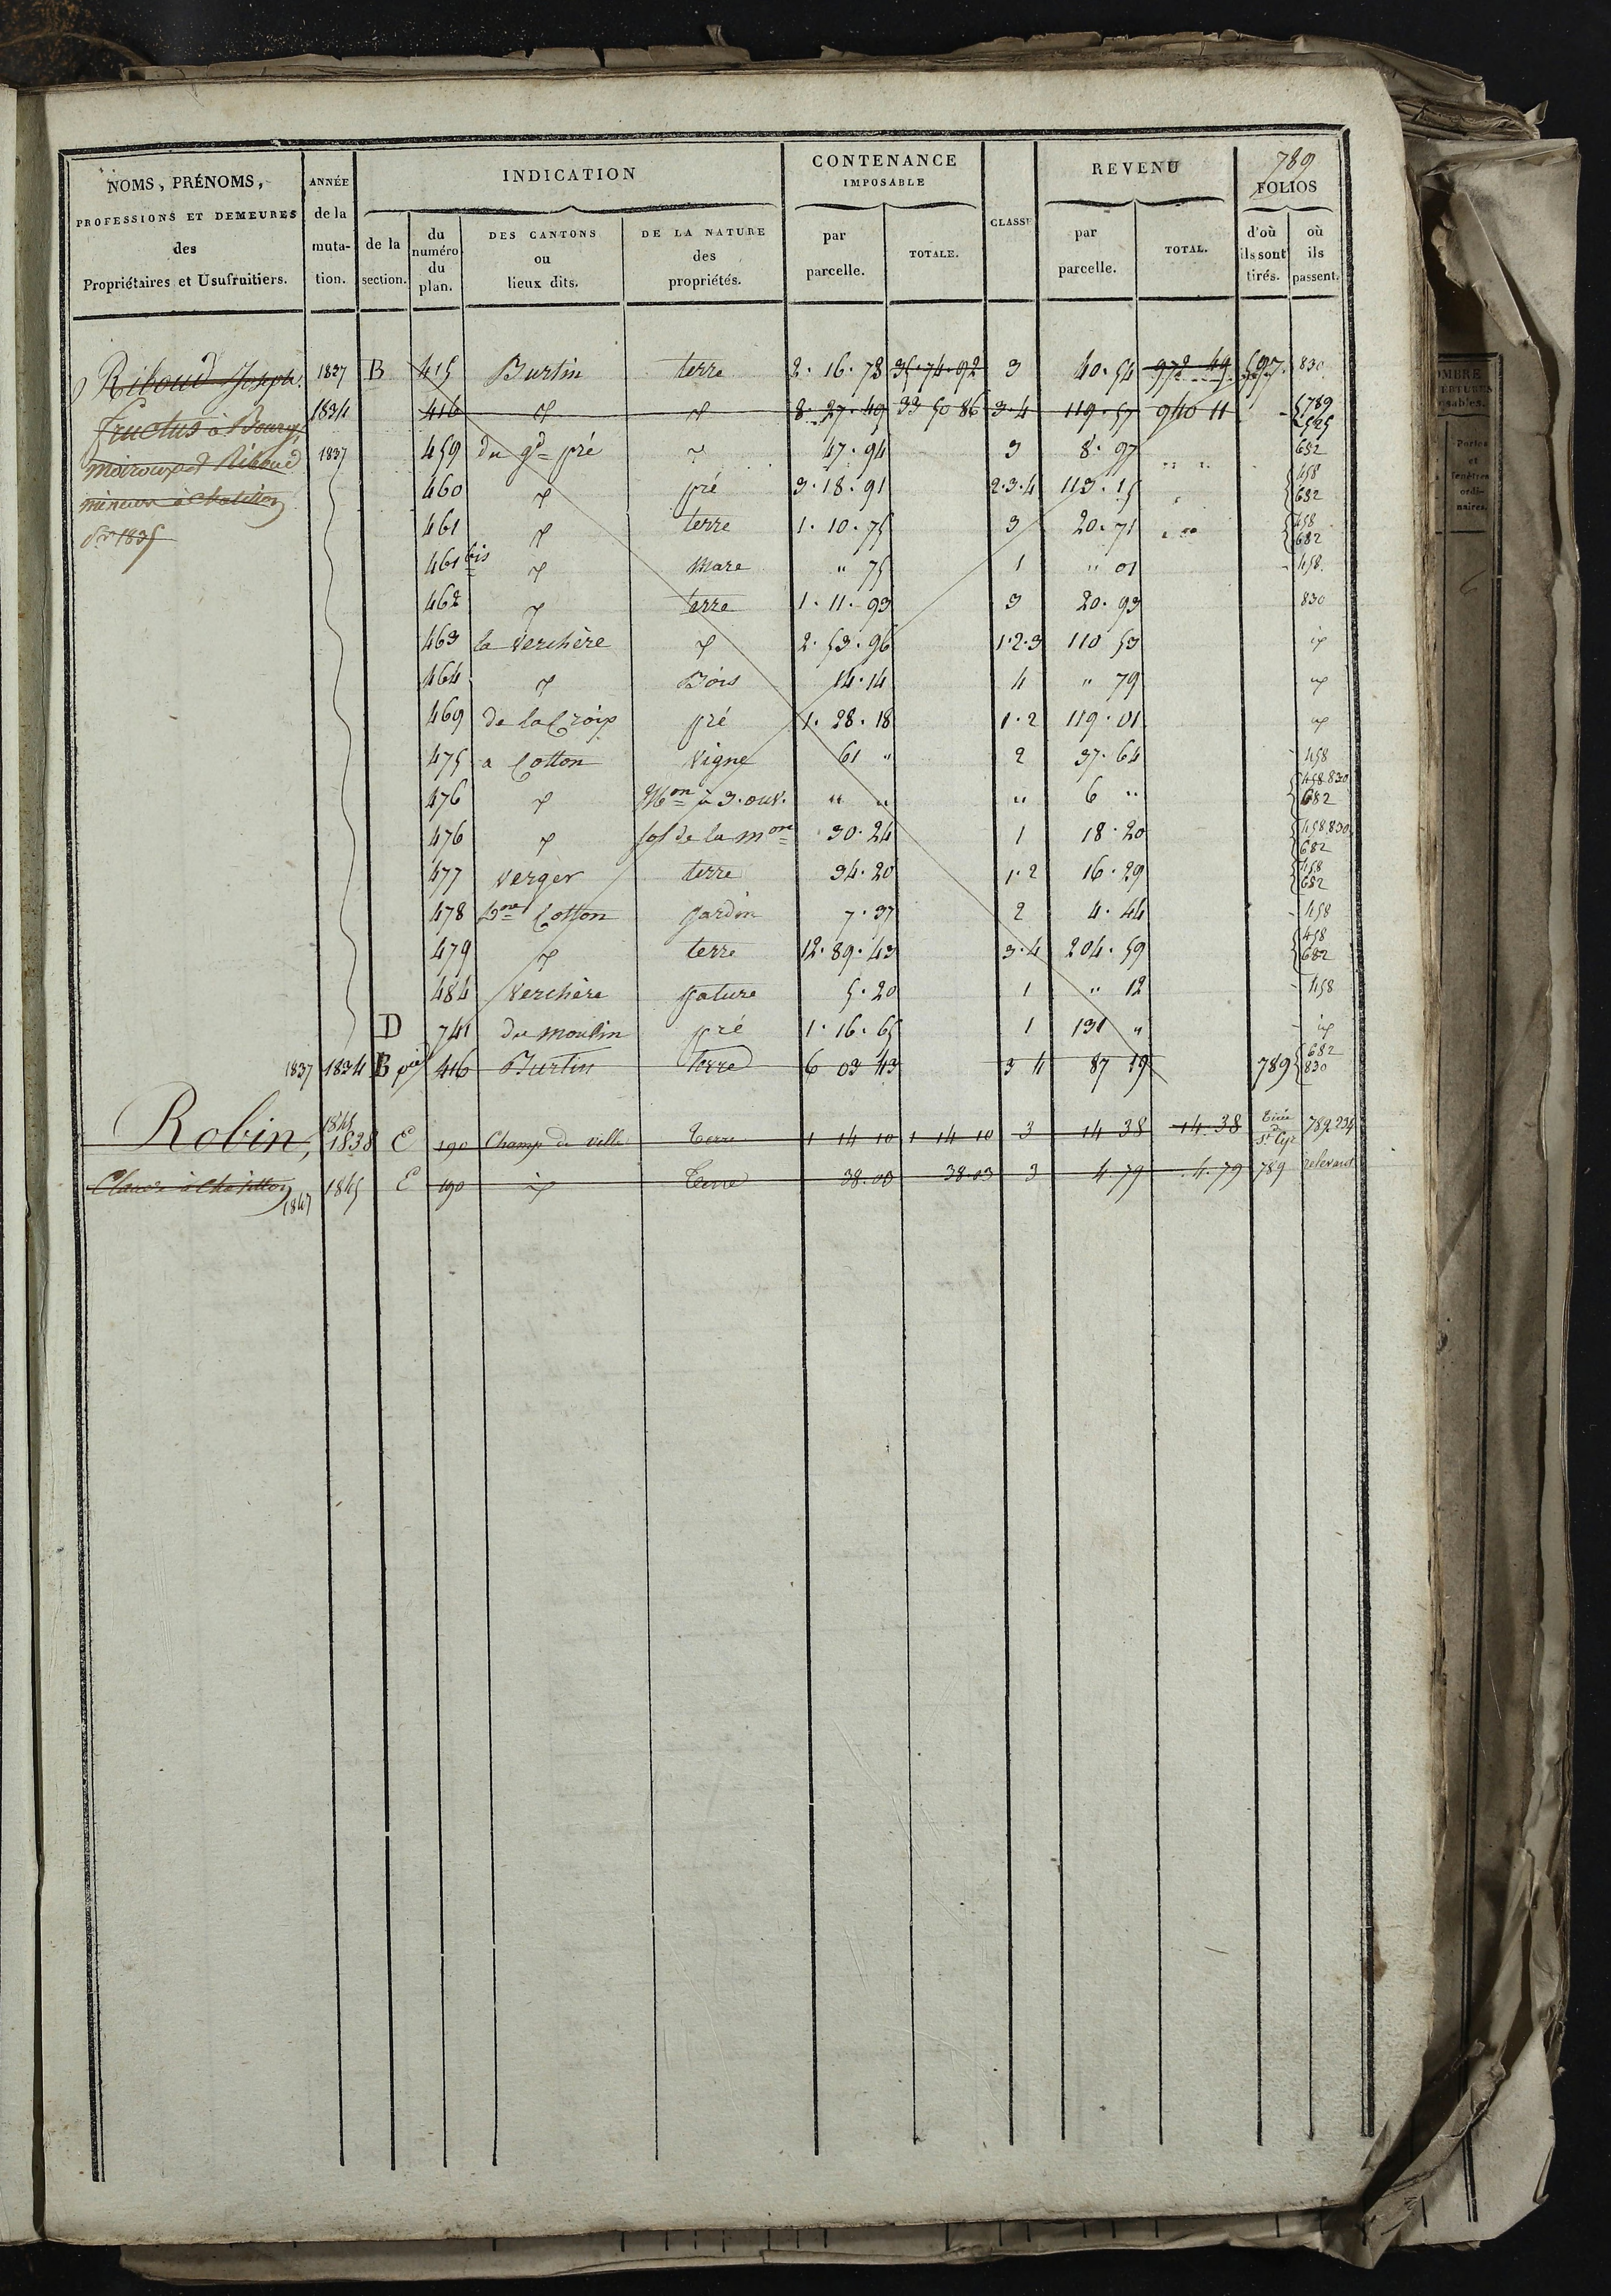 789
NOMS, PRÉNOMS,
PROFESSIONS ET DEMEURES
des
Propriétaires et Usufruitiers.
ANNÉE
de la
muta-
tion.
INDICATION
de la
section.
du
numéro
du
plan.
DES CANTONS
ou
lieux dits.
DE LA NATURE
des
propriétés.
CONTENANCE
IMPOSABLE
par
parcelle.
TOTALE.
CLASSE
REVENU
par
parcelle.
TOTAL.
FOLIOS
d'où
ils sont
tirés.
où
ils
passent.
Riboud Joseph
fructus à Bourg,
et Riboud
mineur à Chatillon
1835
1837 B 415 Burtin terre 2. 16. 78 35. 74. 92 3 40. 54 972 49 597. 830
1834 416 d° d° 8. 27. 49 33 50 86 3. 4 119. 57 940 11 789
1837 459 du gd pré d° 47. 94 3 8. 97 682
460 d° pré 3. 18. 91 2. 3. 4 113. 15 458 682
461 d° terre 1. 10. 75 3 20. 71 458 682
461 bis d° Mare " 75 1 " 01 458
462 d° terre 1. 11. 93 3 20. 93 830
463 la Verchère d° 2. 53. 96 1. 2. 3 110 53 id
464 d° Bois 14. 14 4 " 79 id
469 de la Croix pré 1. 28. 18 1. 2 119. 01 id
475 a Cotton Vigne 61 " 2 37. 64 458
476 d° Mon à 3. ouv. " " " 6 " 458 830 682
476 d° sol de la mon 30. 24 1 18. 20 458 830 682
477 verger terre 34. 20 1. 2 16. 29 458 682
478 Cotton Jardin 7. 37 2 4. 44 458
479 d° terre 12. 89. 43 3. 4 204. 59 458 682
484 Verchère pature 5. 20 1 " 12 458
D 741 du moulin pré 1. 16. 65 1 131 " id
1837 1834 B pie 416 Burtin terre 6 03 43 3 4 87 19 789 682 830
Robin, 1845 1838 E 190 Champ de ville Terre 1 14 10 1 14 10 3 14 38 14. 38 St Cyr 789. 234
Claude à Chatillon 1847 1845 E 190 id Terre 38. 03 38. 03 3 4. 79 4. 79 789
OMBRE
ERTURES
sables.
Portes
et
fenêtres
ordi-
naires.